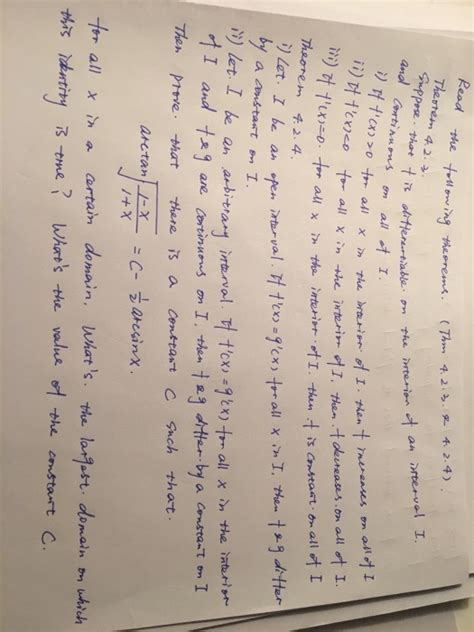 Read the following theorems. (Thm 4.2.3. & 4.2.4).
Theorem 4.2.3.
Suppose that f is differentiable on the interior of an interval I.
and continuous on all of I.
i) If f'(x)>0 for all x in the interior of I. then f increases on all of I
ii) If f'(x)<0 for all x in the interior of I. then f decreases on all of I.
iii) If f'(x)=0 for all x in the interior of I. then f is constant on all of I
Theorem 4.2.4.
i) Let I be an open interval. If f'(x)=g'(x) for all x in I. then f & g differ
by a constant on I.
ii) Let I be an arbitrary interval. If f'(x)=g'(x) for all x in the interior
of I and f & g are continuous on I. then f & g differ by a constant on I
Then prove that there is a constant C such that.
arctan √((1-x)/(1+x)) = C - ½ arcsin x.
for all x in a certain domain. What's the largest domain on which
this identity is true? What's the value of the constant C.